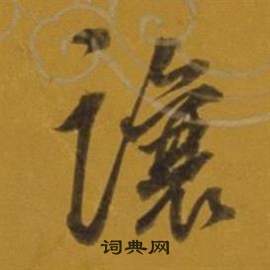 讓
词典网